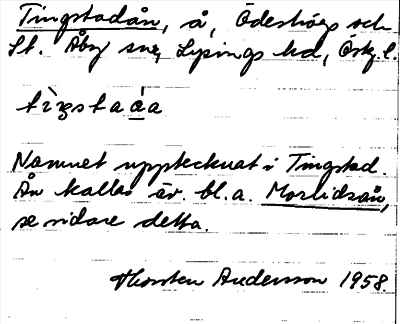 Tingstadån, å, Ödeshögs och
St. Åby snr, Lysings hd, Östg. l.
tìŋstaáa
Namnet upptecknat i Tingstad.
Ån kallas äv. bl.a. Morlidsån,
se vidare detta.
Thorsten Andersson 1958.